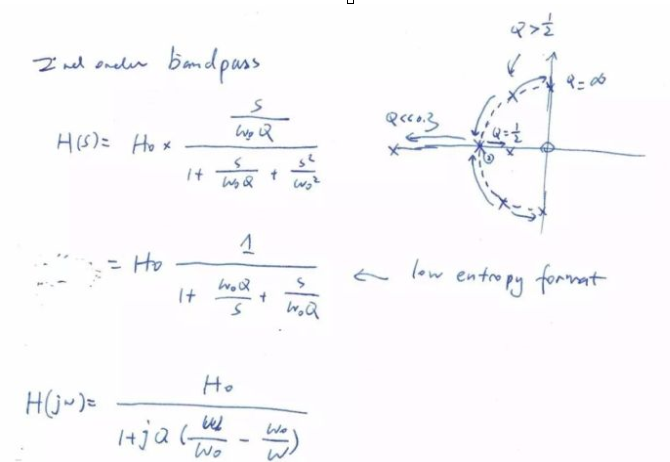 2nd order bandpass
H(s) = H₀ × (s/(ω₀Q)) / (1 + s/(ω₀Q) + s²/ω₀²)
= H₀ 1 / (1 + ω₀Q/s + s/(ω₀Q)) ← low entropy format
H(jω) = H₀ / (1 + jQ(ω/ω₀ − ω₀/ω))
Q > 1/2
Q = ∞
Q << 0.3
Q = 1/2